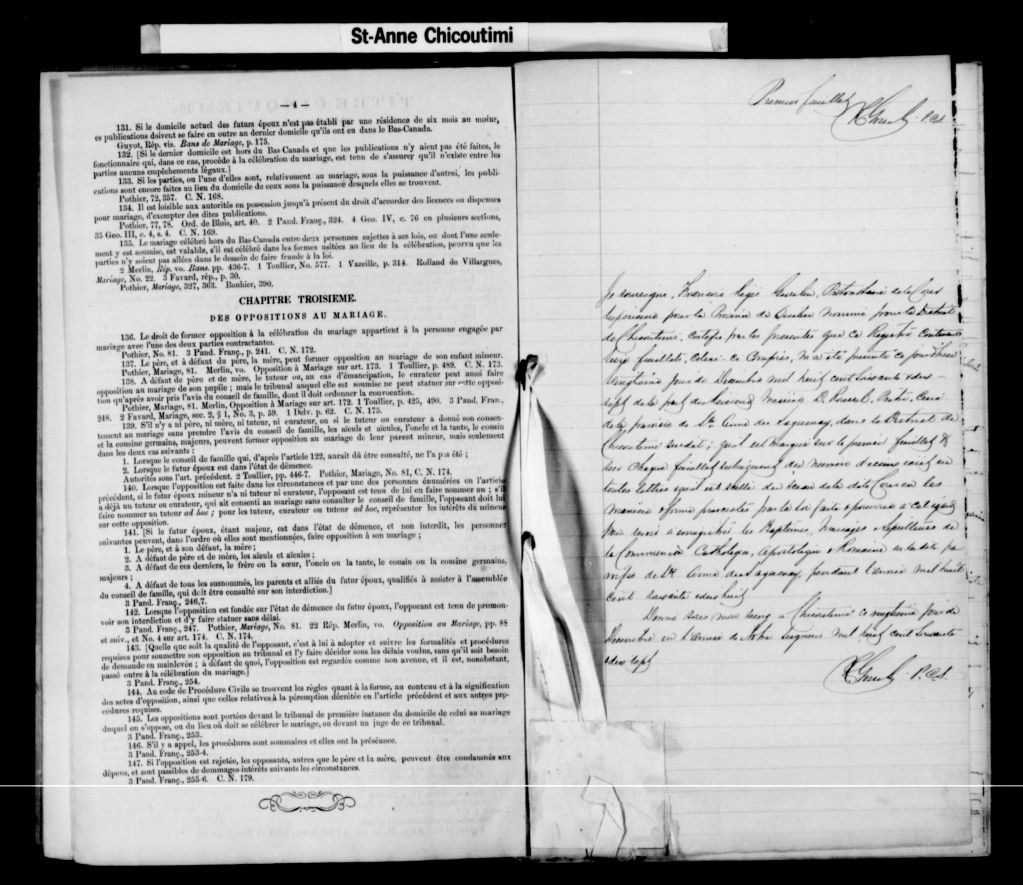 St-Anne Chicoutimi
— 4 —
131. Si le domicile actuel des futurs époux n'est pas établi par une résidence de six mois au moins,
es publications doivent se faire en outre au dernier domicile qu'ils ont eu dans le Bas-Canada.
Guyot, Rép. vis. Bans de Mariage, p. 175.
132. [Si le dernier domicile est hors du Bas Canada et que les publications n'y aient pas été faites, le
fonctionnaire qui, dans ce cas, procède à la célébration du mariage, est tenu de s'assurer qu'il n'existe entre les
parties aucuns empêchements légaux.]
133. Si les parties, ou l'une d'elles sont, relativement au mariage, sous la puissance d'autrui, les publi-
cations sont encore faites au lieu du domicile de ceux sous la puissance desquels elles se trouvent.
Pothier, 72, 357. C. N. 168.
134. Il est loisible aux autorités en possession jusqu'à présent du droit d'accorder des licences ou dispenses
pour mariage, d'exempter des dites publications.
Pothier, 77, 78. Ord. de Blois, art. 40. 2 Pand. Franç., 324. 4 Geo. IV, c. 76 en plusieurs sections,
35 Geo. III, c. 4, s. 4. C. N. 169.
135. Le mariage célébré hors du Bas-Canada entre deux personnes sujettes à ses lois, ou dont l'une seule-
ment y est soumise, est valable, s'il est célébré dans les formes usitées au lieu de la célébration, pourvu que les
parties n'y soient pas allées dans le dessein de faire fraude à la loi.
2 Merlin, Rép. vo. Bans. pp. 436-7. 1 Toullier, No. 577. 1 Vazeille, p. 314. Rolland de Villargues,
Mariage, No. 22. 3 Favard, rép., p. 30.
Pothier, Mariage, 327, 363. Bouhier, 390.
CHAPITRE TROISIEME.
DES OPPOSITIONS AU MARIAGE.
136. Le droit de former opposition à la célébration du mariage appartient à la personne engagée par
mariage avec l'une des deux parties contractantes.
Pothier, No. 81. 3 Pand. Franç., p. 241. C. N. 172.
137. Le père, et à défaut du père, la mère, peut former opposition au mariage de son enfant mineur.
Pothier, Mariage, 81. Merlin, vo. Opposition à Mariage sur art. 173. 1 Toullier, p. 489. C. N. 173.
138. A défaut de père et de mère, le tuteur ou, au cas d'émancipation, le curateur peut aussi faire
opposition au mariage de son pupille ; mais le tribunal auquel elle est soumise ne peut statuer sur cette opposi-
tion qu'après avoir pris l'avis du conseil de famille, dont il doit ordonner la convocation.
Pothier, Mariage, 81. Merlin, Opposition à Mariage sur art. 172. 1 Toullier, p. 425, 490. 3 Pand. Fran.,
248. 2 Favard, Mariage, sec. 2, § 1, No. 3, p. 59. 1 Delv. p. 62. C. N. 175.
139. S'il n'y a ni père, ni mère, ni tuteur, ni curateur, ou si le tuteur ou curateur a donné son consen-
tement au mariage sans prendre l'avis du conseil de famille, les aïeuls et aïeules, l'oncle et la tante, le cousin
et la cousine germains, majeurs, peuvent former opposition au mariage de leur parent mineur, mais seulement
dans les deux cas suivants :
1. Lorsque le conseil de famille qui, d'après l'article 122, aurait dû être consulté, ne l'a pas été ;
2. Lorsque le futur époux est dans l'état de démence.
Autorités sous l'art. précédent. 2 Toullier, pp. 446-7. Pothier, Mariage, No. 81, C. N. 174.
140. Lorsque l'opposition est faite dans les circonstances et par une des personnes énumérées en l'article
précédent, si le futur époux mineur n'a ni tuteur ni curateur, l'opposant est tenu de lui en faire nommer un ; s'il
a déjà un tuteur ou curateur, qui ait consenti au mariage sans consulter le conseil de famille, l'opposant doit lui
faire nommer un tuteur ad hoc ; pour les tuteur, curateur ou tuteur ad hoc, représenter les intérêts du mineur
sur cette opposition.
141. [Si le futur époux, étant majeur, est dans l'état de démence, et non interdit, les personnes
suivantes peuvent, dans l'ordre où elles sont mentionnées, faire opposition à son mariage ;
1. Le père, et à son défaut, la mère ;
2. A défaut de père et de mère, les aïeuls et aïeules ;
3. A défaut de ces derniers, le frère ou la sœur, l'oncle ou la tante, le cousin ou la cousine germains,
majeurs ;
4. A défaut de tous les susnommés, les parents et alliés du futur époux, qualifiés à assister à l'assemblée
du conseil de famille, qui doit être consulté sur son interdiction.]
3 Pand. Franç., 246,7.
142. Lorsque l'opposition est fondée sur l'état de démence du futur époux, l'opposant est tenu de promou-
voir son interdiction et d'y faire statuer sans délai.
3 Pand. Franç., 247. Pothier, Mariage, No. 81. 22 Rép. Merlin, vo. Opposition au Mariage, pp. 88
et suiv., et No. 4 sur art. 174. C. N. 174.
143. [Quelle que soit la qualité de l'opposant, c'est à lui à adopter et suivre les formalités et procédures
requises pour soumettre son opposition au tribunal et l'y faire décider sous les délais voulus, sans qu'il soit besoin
de demande en mainlevée ; à défaut de quoi, l'opposition est regardée comme non avenue, et il est, nonobstant,
passé outre à la célébration du mariage.]
3 Pand. Franç., 254.
144. Au code de Procédure Civile se trouvent les règles quant à la forme, au contenu et à la signification
des actes d'opposition, ainsi que celles relatives à la péremption décrétée en l'article précédent et aux autres pro-
cédures requises.
145. Les oppositions sont portées devant le tribunal de première instance du domicile de celui au mariage
duquel on s'oppose, ou du lieu où doit se célébrer le mariage, ou devant un juge de ce tribunal.
3 Pand. Franç., 253.
146. S'il y a appel, les procédures sont sommaires et elles ont la préséance.
3 Pand. Franç., 253-4.
147. Si l'opposition est rejetée, les opposants, autres que le père et la mère, peuvent être condamnés aux
dépens, et sont passibles de dommages-intérêts suivants les circonstances.
3 Pand. Franç., 255-6. C. N. 179.
Premier feuillet
P.C.S.
Je soussigné, François Régis Gosselin, Protonotaire de la Cour
Supérieure pour la Province de Québec nommé pour le District
de Chicoutimi, certifie par les présentes que ce Registre contenant
feuillets, celui-ci compris, m'a été présenté ce jourd'hui
vingtième jour de Décembre mil huit cent soixante et dix-
sept de la part du Révérend Messire D. Roussel, Prêtre, Curé
de la paroisse de Ste Anne du Saguenay, dans le District de
Chicoutimi susdit ; qu'il est marqué sur le premier feuillet &
sur chaque feuillet subséquent du numéro d'iceux écrit en
toutes lettres & qu'il est scellé du sceau de la dite Cour en la
manière & forme prescrites par la loi faite & pourvue à cet égard
pour servir à enregistrer les Baptêmes, mariages & sépultures de
la Communion Catholique, Apostolique & Romaine en la dite pa
roisse de Ste Anne du Saguenay, pendant l'année mil huit
cent soixante & dix huit
Donné sous mon seing à Chicoutimi ce vingtième jour de
Décembre en l'année de Notre Seigneur mil huit cent soixante
& dix sept
P.C.S.